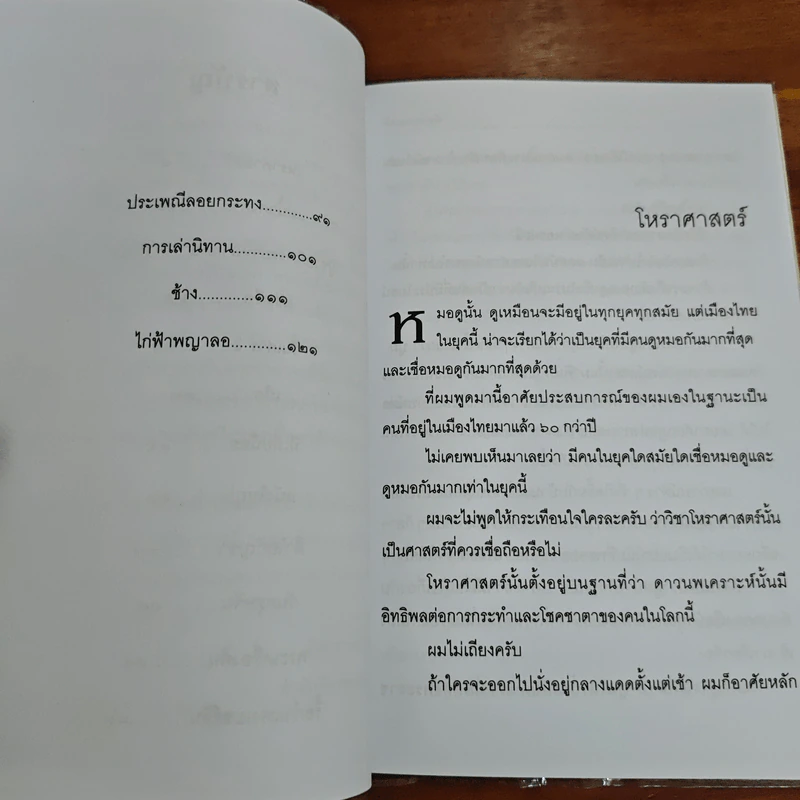 ประเพณีลอยกระทง............๙๑
การเล่านิทาน............๑๐๑
ช้าง............๑๑๑
ไก่ฟ้าพญาลอ............๑๒๑
โหราศาสตร์
หมอดูนั้น ดูเหมือนจะมีอยู่ในทุกยุคทุกสมัย แต่เมืองไทย
ในยุคนี้ น่าจะเรียกได้ว่าเป็นยุคที่มีคนดูหมอกันมากที่สุด
และเชื่อหมอดูกันมากที่สุดด้วย
ที่ผมพูดมานี้อาศัยประสบการณ์ของผมเองในฐานะเป็น
คนที่อยู่ในเมืองไทยมาแล้ว ๖๐ กว่าปี
ไม่เคยพบเห็นมาเลยว่า มีคนในยุคใดสมัยใดเชื่อหมอดูและ
ดูหมอกันมากเท่าในยุคนี้
ผมจะไม่พูดให้กระเทือนใจใครละครับ ว่าวิชาโหราศาสตร์นั้น
เป็นศาสตร์ที่ควรเชื่อถือหรือไม่
โหราศาสตร์นั้นตั้งอยู่บนฐานที่ว่า ดาวนพเคราะห์นั้นมี
อิทธิพลต่อการกระทำและโชคชาตาของคนในโลกนี้
ผมไม่เถียงครับ
ถ้าใครจะออกไปนั่งอยู่กลางแดดตั้งแต่เช้า ผมก็อาศัยหลัก